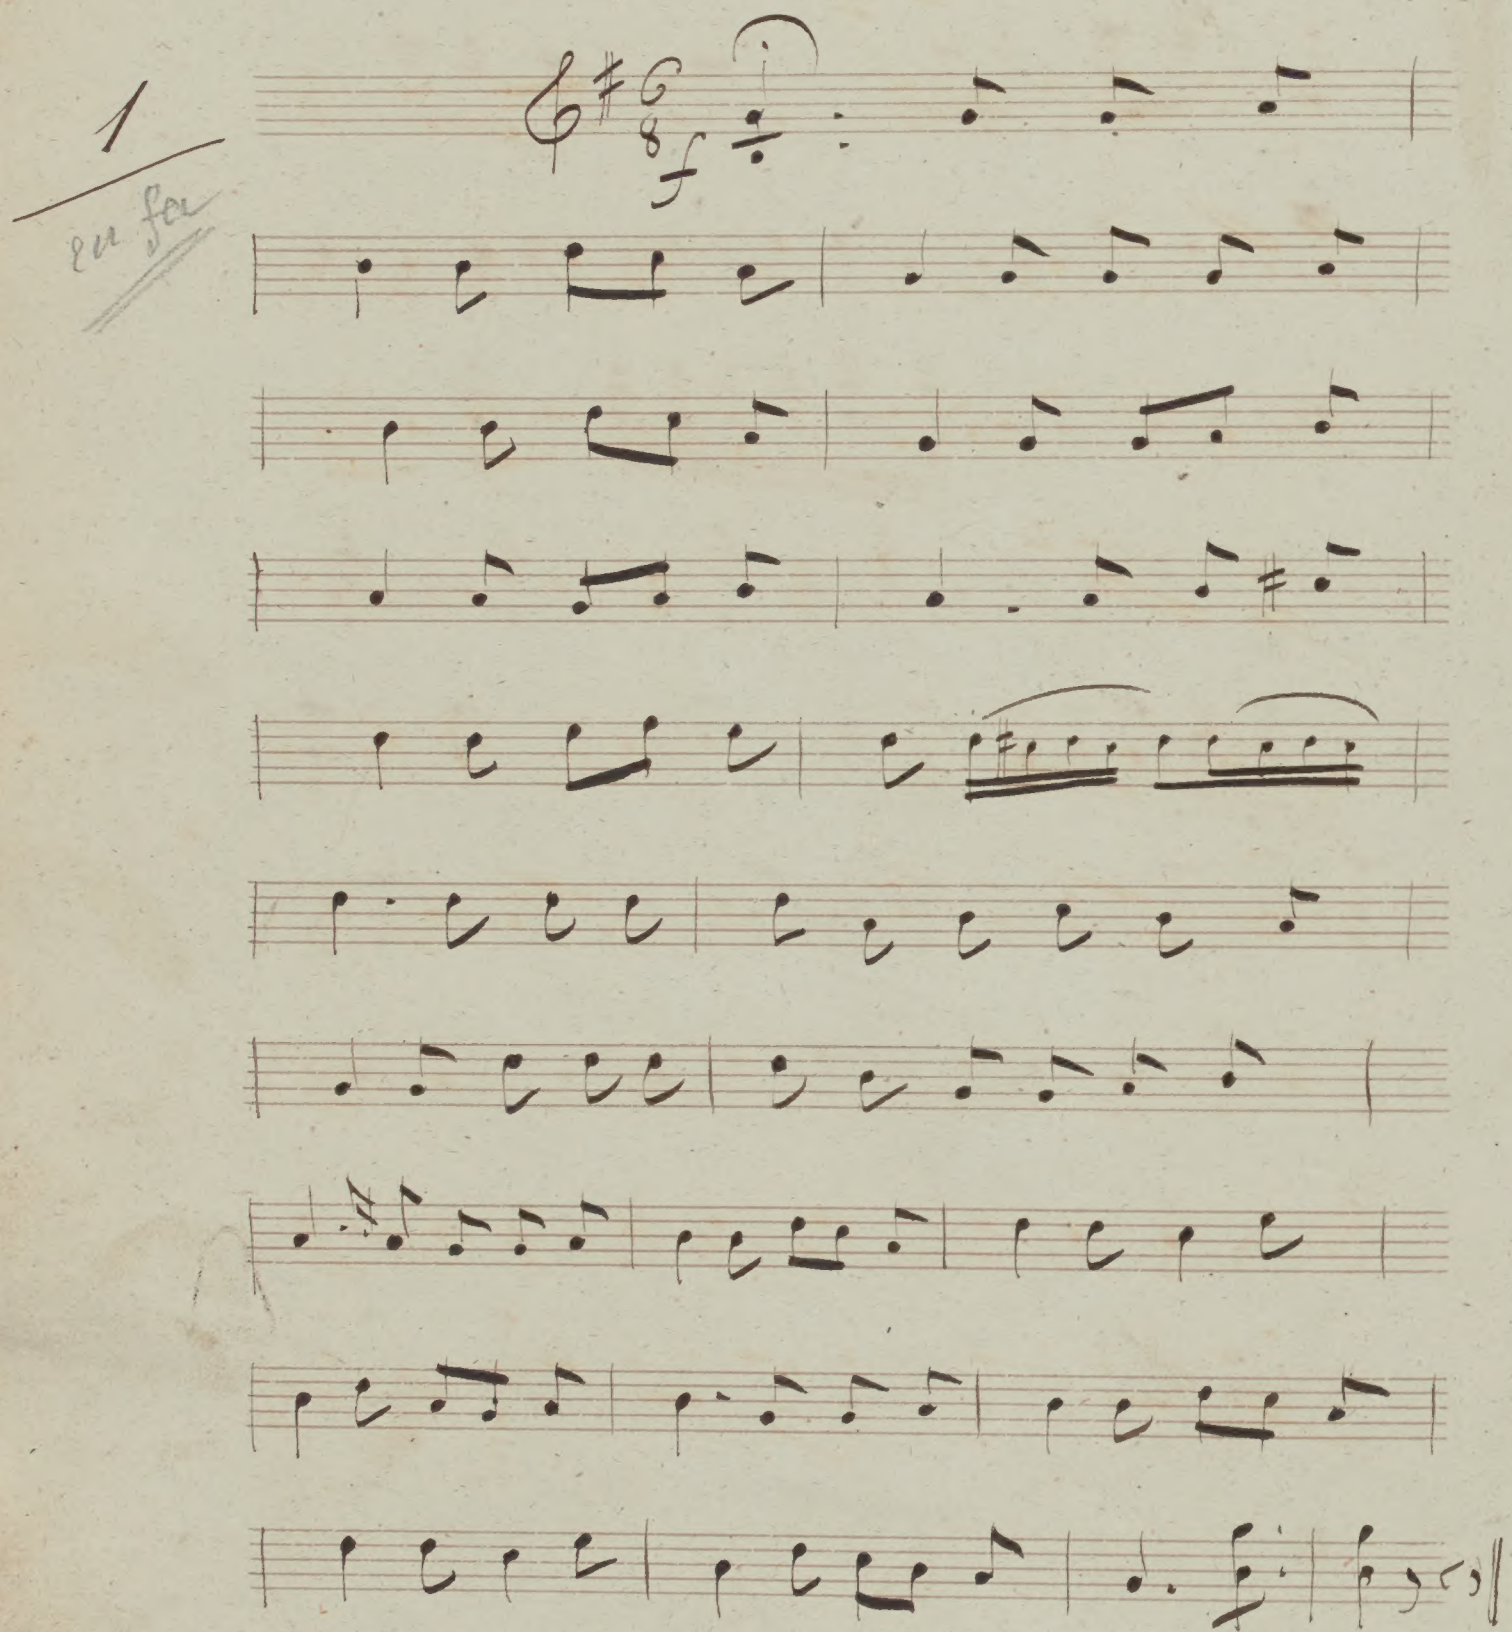 1
en fa
6
8
f